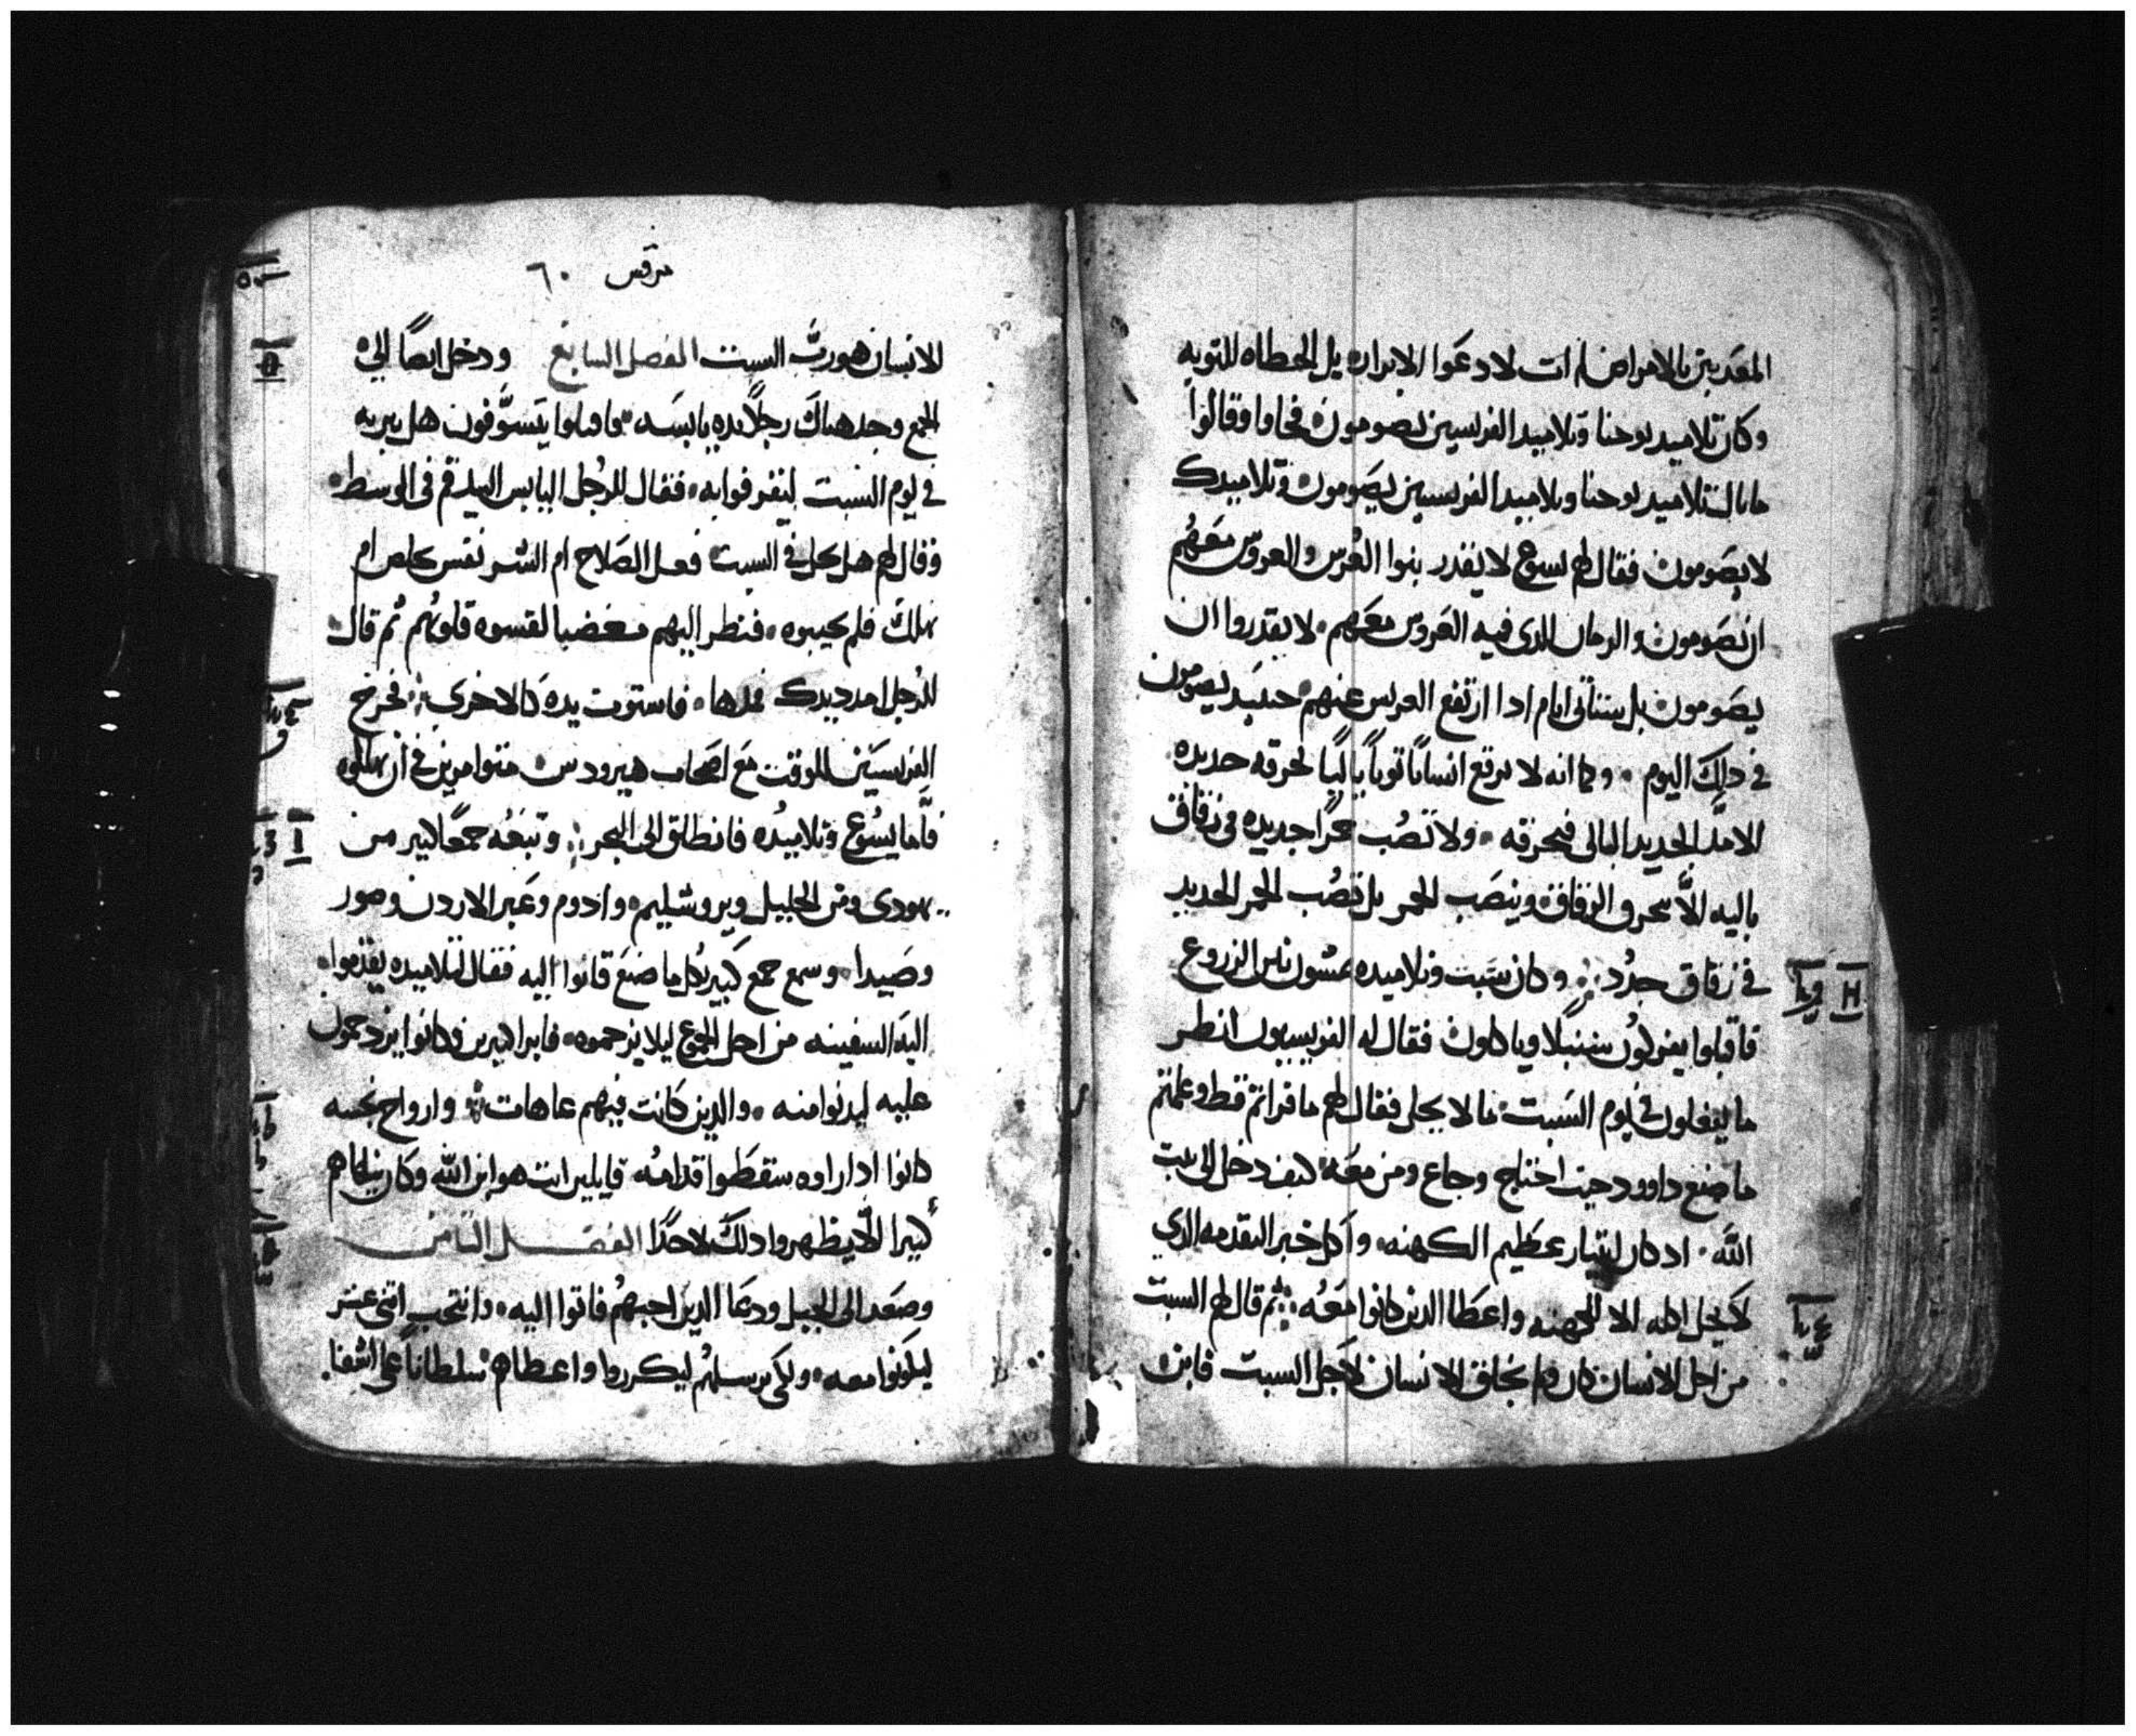 المعدبين بالامراض لم ات لادعوا الابرار بل الخطاه للتوبه
وكان تلاميد يوحنا وتلاميد الفريسين يصومون فجاوا وقالوا
ما بال تلاميد يوحنا وتلاميد الفريسيين يصومون وتلاميدك
لا يصومون فقال لهم يسوع لا يقدر بنوا العرس والعروس معهم
ان يصومون والزمان الدى فيه العروس معهم لا يقدروا ان
يصومون بل ستاتى ايام ادا ارتفع العريس عنهم حينيد يصومون
في دلك اليوم وكما انه لا يرقع انسانا توبا باليا بخرقه جديده
الا مد الجديد البالى فيخرقه ولا تصب خمرا جديده فى زقاق
باليه الا تنخرق الزقاق وينصب الخمر بل تصب الخمر الجديد
في زقاق جدد وكان سبت وتلاميده يمشون بين الزروع
فاقبلوا يفركون سنبلا وياكلون فقال له الفريسيون انظر
ما يفعلون في يوم السبت ما لا يحل فقال لهم ما قراتم قط وعلمتم
ما صنع داوود حيت احتاج وجاع ومن معه كيف دخل الى بيت
الله اد كان ابيتار عظيم الكهنه واكل خبز التقدمه الدي
لا يحل اكله الا للكهنه واعطا الدين كانوا معه ثم قال لهم السبت
من اجل الانسان كان ولم يخلق الانسان لاجل السبت فابن
مرقس ٦٠
الانسان هو رب السبت الفصل السابع ودخل ايضا الي
المجمع وجد هناك رجلا يده يابسه فاقبلوا يتسوفون هل يبريه
في يوم السبت ليقرفوا به فقال للرجل اليابس اليد قم فى الوسط
وقال لهم هل يحل في السبت فعل الصلاح ام الشر نفس يخلص ام
يهلك فلم يجيبوه فنظر اليهم مغضبا لقسوه قلوبهم ثم قال
للرجل امدد يدك فمدها فاستوت يده كالاخرى فخرج
الفريسيين للوقت مع اصحاب هيرودس متوامرين في ان يهلكوه
فاما يسوع وتلاميده فانطلق الى البحر وتبعه جمعا كبير من
يهودى ومن الجليل ويروشليم وادوم وعبر الاردن وصور
وصيدا وسمع جمع كبير بكل ما صنع فاتوا اليه فقال لتلاميده يقدموا
اليه السفينه من اجل الجموع ليلا يزحموه فابرا كثيرين وكانوا يزدحمون
عليه ليدنوا منه والدين كانت فيهم عاهات وارواح نجسه
كانوا ادا راوه سقطوا قدامه قايلين انت هو ابن الله وكان ينهاهم
كثيرا الا يظهروا دلك لاحد الفصل الثامن
وصعد الى الجبل ودعا الدين احبهم فاتوا اليه وانتخب اتنى عشر
ليكونوا معه ولكى يرسلهم ليكرزوا واعطاهم سلطانا على اشفا